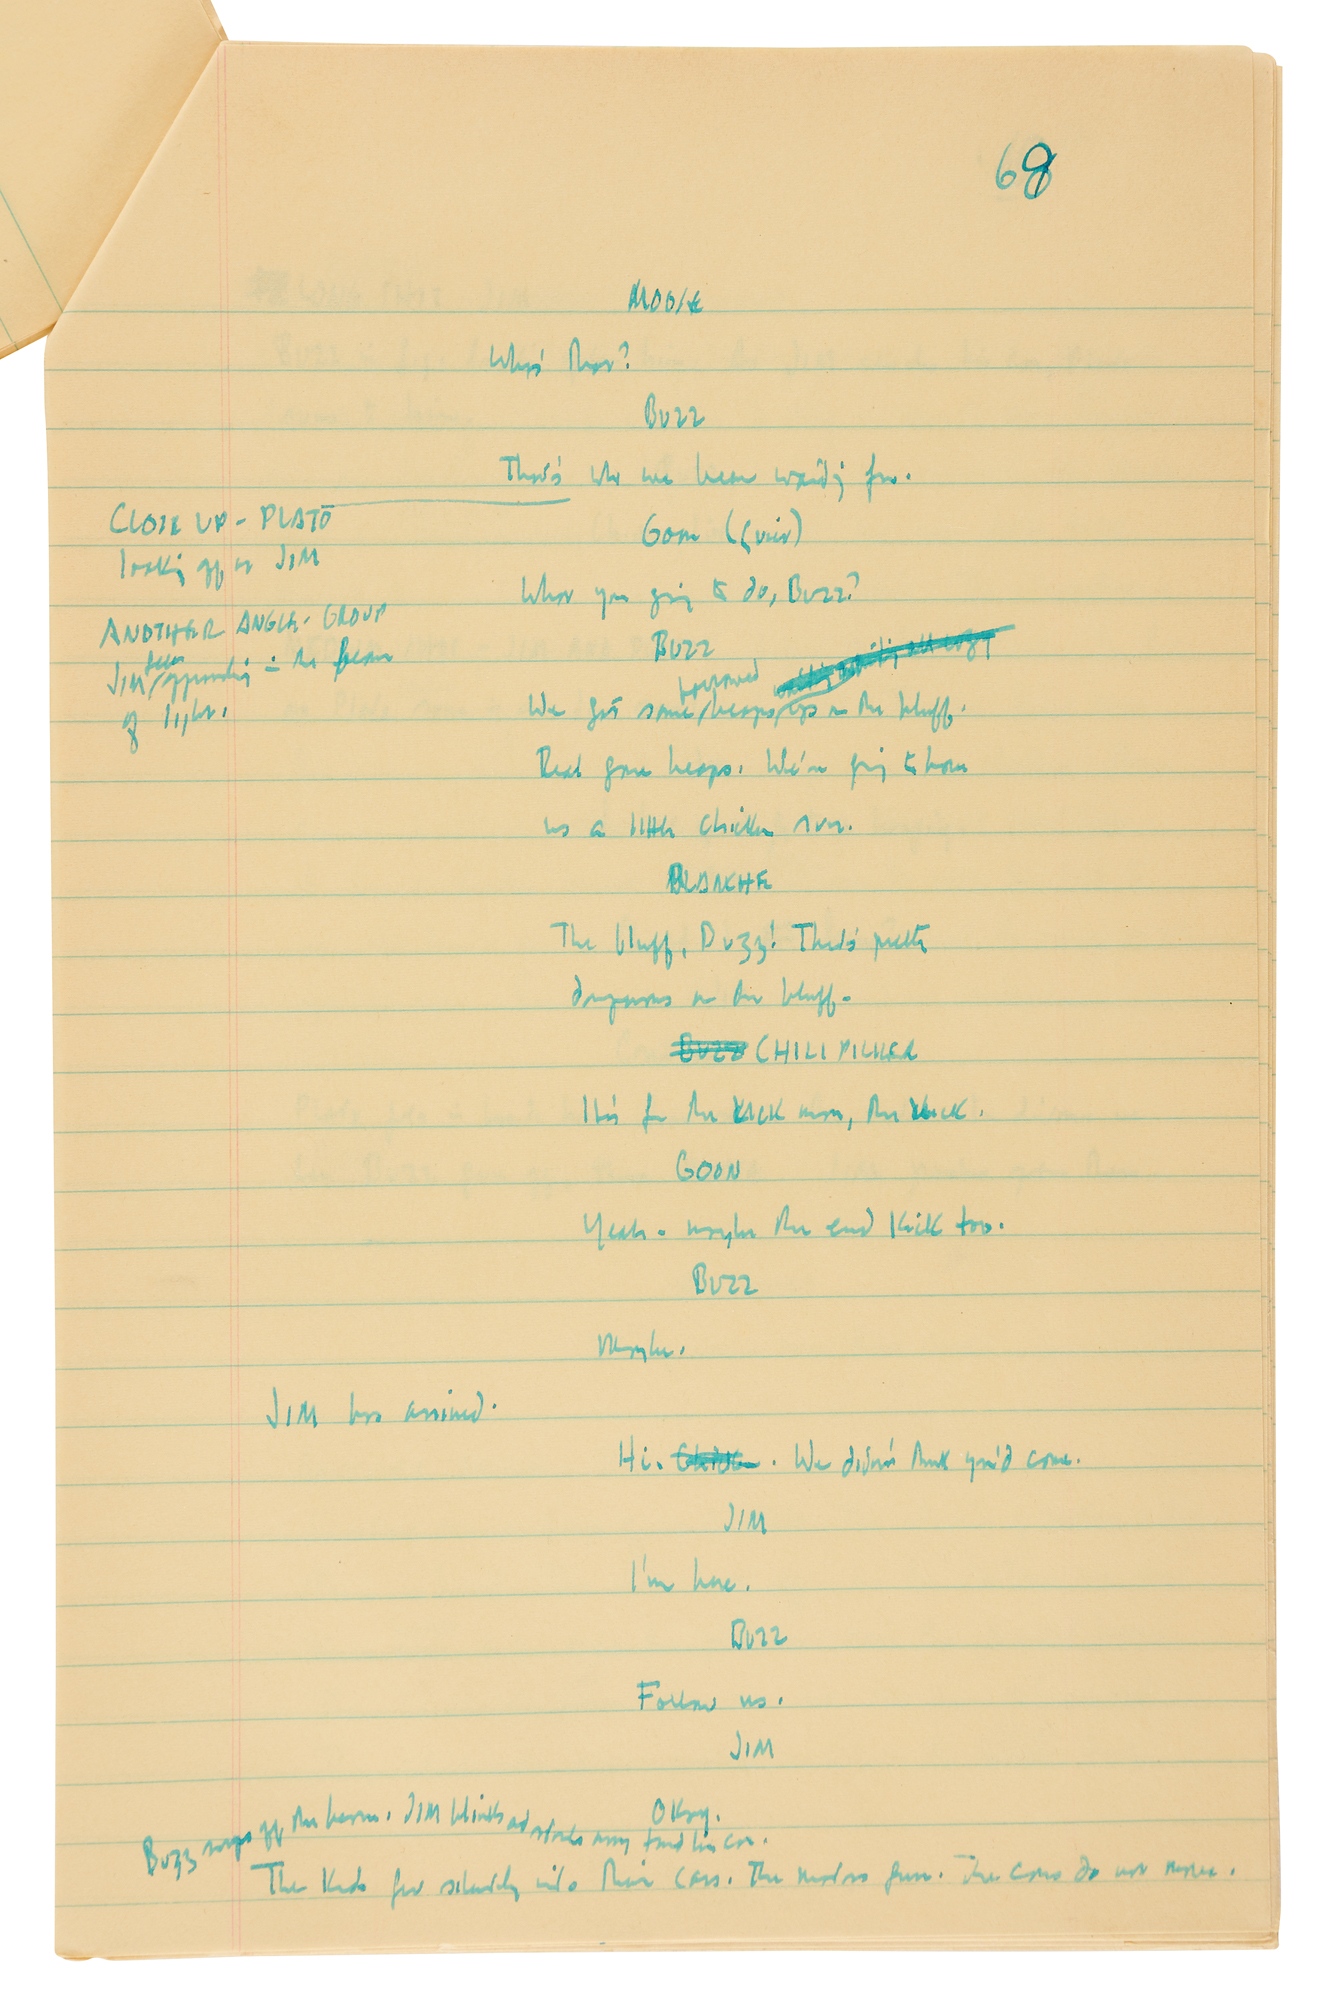 68
MOOSE
Who's that?
BUZZ
That's who we been waiting for.
CLOSE UP - PLATO
looking off at JIM
GOON (quiet)
What you going to do, Buzz?
ANOTHER ANGLE - GROUP
JIM seen approaching in the beam
of light.
BUZZ
We got some borrowed heaps up on the bluff.
Real gone heaps. We're going to have
us a little chicken run.
BLANCHE
The bluff, Buzz! That's pretty
dangerous on the bluff.
Buzz CHILI PICKER
It's for the KICK man, the KICK.
GOON
Yeah - maybe the end kick too.
BUZZ
Maybe.
JIM has arrived.
Hi. We didn't think you'd come.
JIM
I'm here.
BUZZ
Follow us.
JIM
Okay.
Buzz snaps off the beam. JIM blinks and starts away toward his car.
The kids get silently into their cars. The motors gun. The cars do not move.